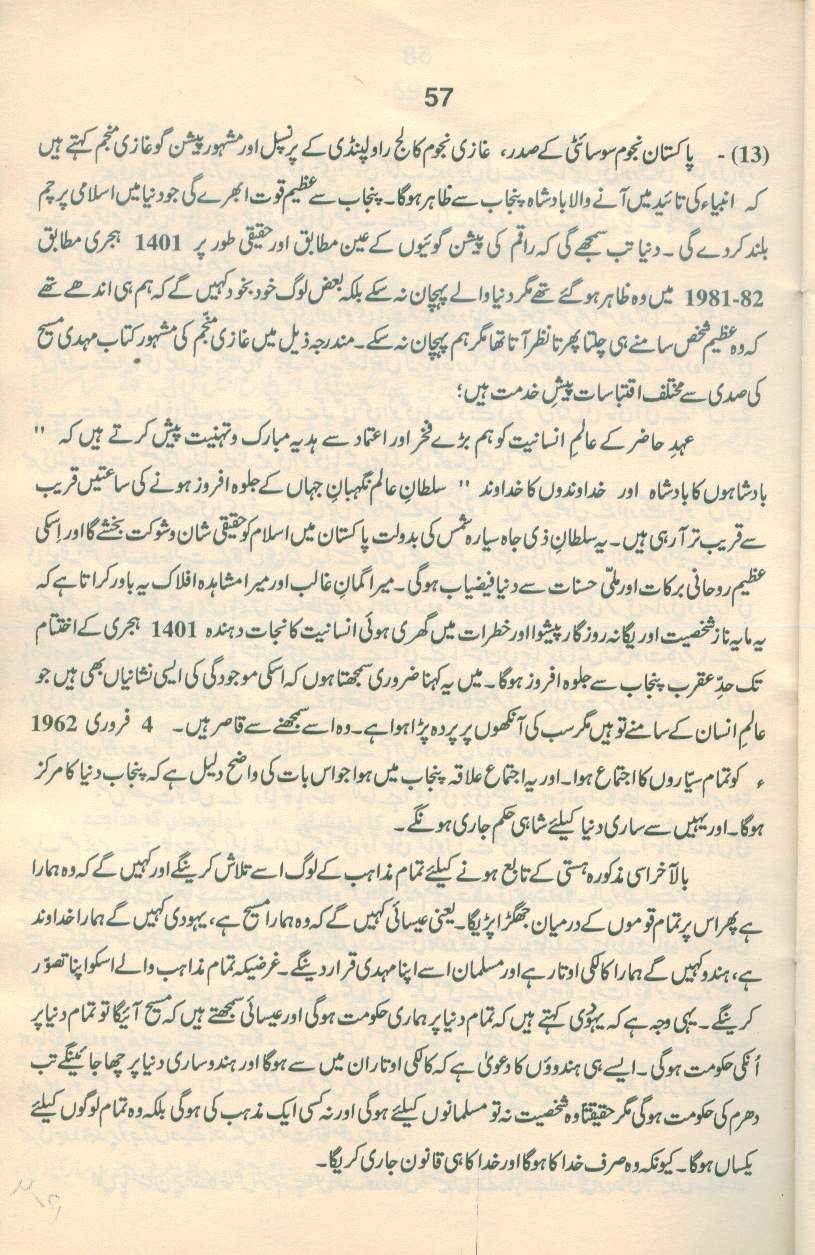 57
(13) - پاکستان نجوم سوسائٹی کے صدر، غازی نجوم کالج راولپنڈی کے پرنسپل اور مشہور پیشن گو غازی منجم کہتے ہیں
کہ انبیاء کی تائید میں آنے والا بادشاہ پنجاب سے ظاہر ہوگا۔ پنجاب سے عظیم قوت ابھرے گی جو دنیا میں اسلامی پرچم
بلند کردے گی۔ دنیا تب سمجھے گی کہ راقم کی پیشن گوئیوں کے عین مطابق اور حقیقی طور پر 1401 ہجری مطابق
1981-82 میں وہ ظاہر ہوگئے تھے مگر دنیا والے پہچان نہ سکے بلکہ بعض لوگ خود بخود کہیں گے کہ ہم ہی اندھے تھے
کہ وہ عظیم شخص سامنے ہی چلتا پھرتا نظر آتا تھا مگر ہم پہچان نہ سکے۔ مندرجہ ذیل میں غازی منجّم کی مشہور کتاب مہدی مسیح
کی صدی سے مختلف اقتباسات پیشِ خدمت ہیں؛
عہدِ حاضر کے عالمِ انسانیت کو ہم بڑے فخر اور اعتماد سے ہدیہ مبارک وتہنیت پیش کرتے ہیں کہ "
بادشاہوں کا بادشاہ اور خداوندوں کا خداوند " سلطانِ عالم نگہبانِ جہاں کے جلوہ افروز ہونے کی ساعتیں قریب
سے قریب تر آرہی ہیں۔ یہ سلطانِ ذی جاہ سیارہ شمس کی بدولت پاکستان میں اسلام کو حقیقی شان وشوکت بخشے گا اور اِسکی
عظیم روحانی برکات اور ملّی حسنات سے دنیا فیضیاب ہوگی۔ میرا گمانِ غالب اور میرا مشاہدہ افلاک یہ باور کراتا ہے کہ
یہ مایہ ناز شخصیت اور یگانہ روزگار پیشوا اور خطرات میں گھری ہوئی انسانیت کا نجات دہندہ 1401 ہجری کے اختتام
تک حدِّ عقرب پنجاب سے جلوہ افروز ہوگا۔ میں یہ کہنا ضروری سمجھتا ہوں کہ اسکی موجودگی کی ایسی نشانیاں بھی ہیں جو
عالمِ انسان کے سامنے تو ہیں مگر سب کی آنکھوں پر پردہ پڑا ہوا ہے۔ وہ اسے سمجھنے سے قاصر ہیں۔ 4 فروری 1962
ء کو تمام سیّاروں کا اجتماع ہوا۔ اور یہ اجتماع علاقہ پنجاب میں ہوا جو اس بات کی واضح دلیل ہے کہ پنجاب دنیا کا مرکز
ہوگا۔ اور یہیں سے ساری دنیا کیلئے شاہی حکم جاری ہونگے۔
بالآخر اسی مذکورہ ہستی کے تابع ہونے کیلئے تمام مذاہب کے لوگ اسے تلاش کرینگے اور کہیں گے کہ وہ ہمارا
ہے پھر اس پر تمام قوموں کے درمیان جھگڑا پڑیگا۔ یعنی عیسائی کہیں گے کہ وہ ہمارا مسیح ہے، یہودی کہیں گے ہمارا خداوند
ہے، ہندو کہیں گے ہمارا کالکی اوتار ہے اور مسلمان اسے اپنا مہدی قرار دینگے۔ غرضیکہ تمام مذاہب والے اسکو اپنا تصوّر
کرینگے۔ یہی وجہ ہے کہ یہودی کہتے ہیں کہ تمام دنیا پر ہماری حکومت ہوگی اور عیسائی سمجھتے ہیں کہ مسیح آئیگا تو تمام دنیا پر
اُنکی حکومت ہوگی۔ ایسے ہی ہندوؤں کا دعویٰ ہے کہ کالکی اوتار ان میں سے ہوگا اور ہندو ساری دنیا پر چھا جائینگے تب
دھرم کی حکومت ہوگی مگر حقیقتاً وہ شخصیت نہ تو مسلمانوں کیلئے ہوگی اور نہ کسی ایک مذہب کی ہوگی بلکہ وہ تمام لوگوں کیلئے
یکساں ہوگا۔ کیونکہ وہ صرف خدا کا ہوگا اور خدا کا ہی قانون جاری کریگا۔